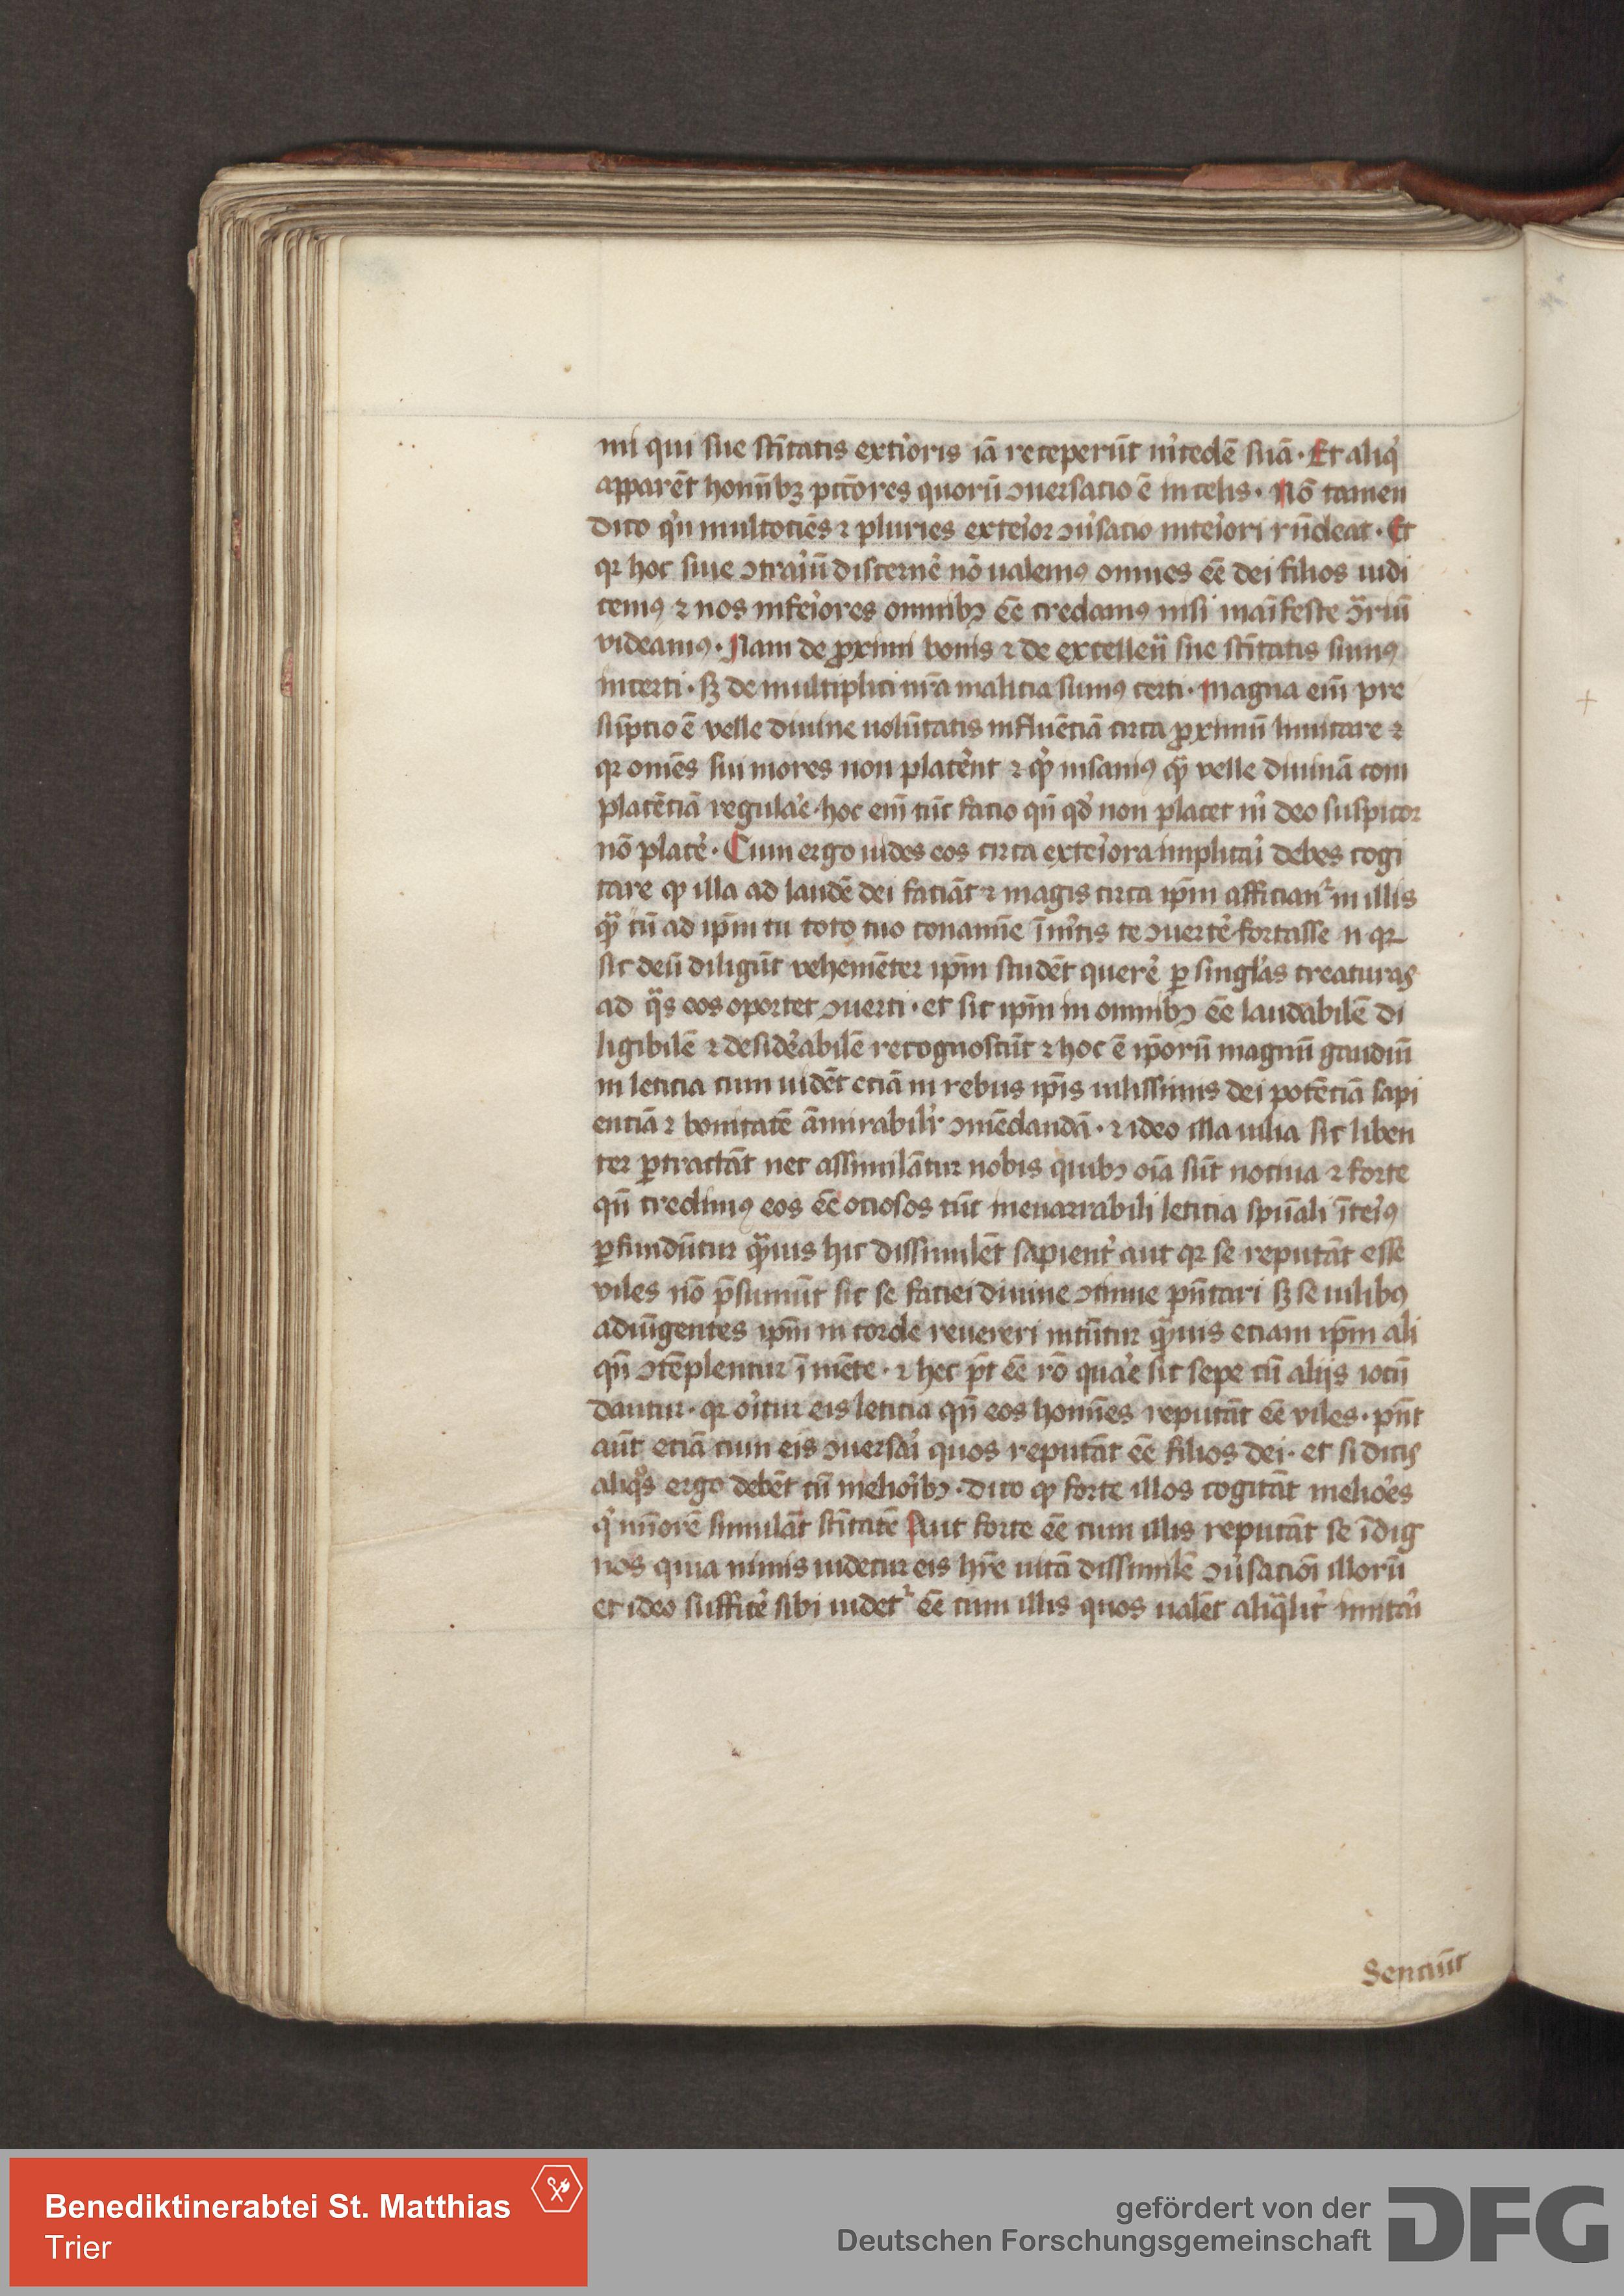 mi qui sue sc̄itatis ext̓ioris iā receperūt m̓cedē suā · Et aliq̓
apparēt homībꝫ pcc̄ores quorū ꝯuersatio ē in celis · Nō tamen
dico qn̓ multociēs ⁊ pluries exte̓ior ꝯu̓satio inte̓iori rn̄deat · Et
qꝛ hoc siue ꝯtra̓iū discerne̓ nō ualemꝰ omnes eē dei filios iudi
cemꝰ ⁊ nos infe̓iores omnibꝫ eē credamꝰ nisi maīfeste ꝯ̄riū
videamꝰ · Nam de ꝓximi bonis ⁊ de excellen̄ sue sc̄itatis sumꝰ
incerti · sꝫ de multiplici nr̄a malicia sumꝰ certi · Magna em̄ pre
sūptio ē velle diuine uolūtatis influēciā circa ꝓximū limitare ⁊
qꝛ om̄es sui mores non place̓nt ⁊ qꝫ insaniꝰ qᷓ velle diuinā com
placēciā regula̓e · hoc em̄ tūc facio qn̄ qd̓ non placet m̓ deo suspicor
nō place̓ · Cum ergo uides eos circa exte̓iora implica̓i debes cogi
tare ꝙ illa ad laudē dei faciāt ⁊ magis circa ip̄m afficianᷣ in illis
qᷓ tū ad ip̄m tu toto tuo conamīe īnit̓is te ꝯuerte̓ fortasse n̄ qꝛ
sic deū diligūt vehemēter ip̄m studēt quere̓ ꝑ singl̓as creaturas
ad qᷓs eos oportet ꝯuerti · et sic ip̄m in omnibꝫ eē laudabilē di
ligibilē ⁊ deside̓abilē recognoscūt ⁊ hoc ē ip̄orū magnū gaudiū
in leticia cum uidēt eciā in rebus ip̄is uilissimis dei potēciā sapi
enciā ⁊ bonitatē āmirabilit̓ ꝯmēdandā · ⁊ ideo illa uilia sic liben
ter ꝑtractāt nec assimilātur nobis quibꝫ oīa sūt nociua ⁊ forte
qn̄ credimꝰ eos eē ociosos tūc inenarrabili leticia spūali īte̓iꝰ
ꝑfundūtur qᷓuis hic dissimulēt sapient̓ aut qꝛ se reputāt esse
viles nō p̄sumūt sic se faciei diuine ꝯtinue pn̄tari sꝫ se uilibꝰ
adiūgentes ip̄m in corde reuereri nitūtur qᷓuis eciam ip̄m ali
qn̄ ꝯtēplentur ī mēte · ⁊ hec p̄t eē rō qua̓e sic sepe cū alijs iocū
dantur · qꝛ o̓itur eis leticia qn̄ eos homīes reputāt eē viles · pn̄t
aūt eciā cum eis ꝯuersa̓i quos reputāt eē filios dei · et si dicis
aliqᵒs ergo debēt cū melio̓ibꝫ · dico ꝙ forte illos cogitāt melio̓es
q̓ mīorē simulāt sc̄itatē Aut forte eē cum illis reputāt se īdig
nos quia nimis uidetur eis hr̄e uitā dissimilē ꝯu̓sacioī illorū
et ideo suffice̓ sibi uidetᷣ eē cum illis quos ualēt aliqᷓlit̓ imita̓i
Senciūt
Benediktinerabtei St. Matthias
Trier
gefördert von der
Deutschen Forschungsgemeinschaft
DFG